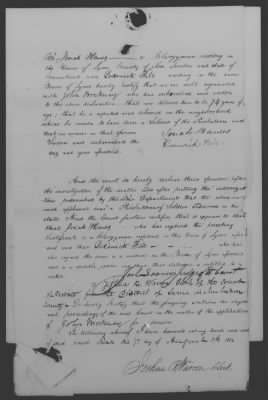 We Josiah Hawes — a Clergyman residing in
the Town of Lyme County of New London and State of
Connecticut and Lodowick Hill residing in the same
Town of Lyme hereby certify that we are well acquainted
with John Brockway who has subscribed and sworn
to the above declaration, that we believe him to be 74 years of
age; that he is reputed and believed in the neighborhood
where he resides to have been a Soldier of the Revolution and
that we concur in that opinion
Sworn and subscribed the
day and year aforesaid
And the court do hereby declare their opinion after
the investigation of the matter and after putting the interroga
tions prescribed by the War Department that the above na
med applicant was a Revolutionary Soldier and
states And the Court further certifies that it appears to them
that Josiah Hawes who has signed the preceding
Certificate is a Clergyman resident in the town of Lyme
and that Lodowick Hill — who has
also signed the same is a resident in the Town of Lyme aforesaid
and is a credible person and that their statement is entitled to
credit
Clerk of the Court
of Probate District of Lyme New London
County do hereby certify that the foregoing contains the original
proceedings of the said Court in the matter of the application
of John Brockway for a pension
In testimony whereof I have hereunto set my hand and seal
of said Court this 7th day of August
Joshua Warren Clerk